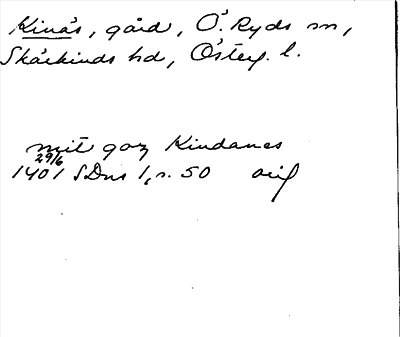 Kinås, gård, Ö. Ryds sn,
Skärkinds hd, Österg. l.
mit goz Kindanes
29/6
1401 SDns 1, s. 50 orig